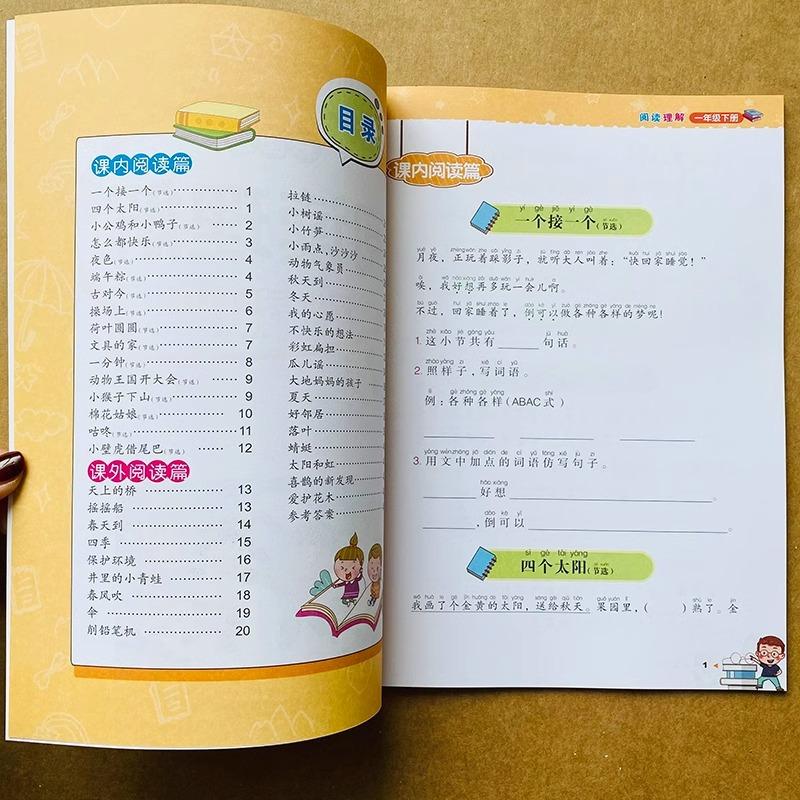 目录
课内阅读篇
一个接一个(节选)………………1
四个太阳(节选)………………1
小公鸡和小鸭子(节选)………2
怎么都快乐(节选)………………3
夜色(节选)………………4
端午粽(节选)………………4
古对今(节选)………………5
操场上(节选)………………6
荷叶圆圆(节选)………………7
文具的家(节选)………………7
一分钟(节选)………………8
动物王国开大会(节选)………9
小猴子下山(节选)………………9
棉花姑娘(节选)………………10
咕咚(节选)………………11
小壁虎借尾巴(节选)………12
课外阅读篇
天上的桥………………13
摇摇船………………13
春天到………………14
四季………………15
保护环境………………16
井里的小青蛙………………17
春风吹………………18
伞………………19
削铅笔机………………20
拉链………………
小树谣………………
小竹笋………………
小雨点,沙沙沙………
动物气象员………………
秋天到………………
冬天………………
我的心愿………………
不快乐的想法………
彩虹扁担………………
瓜儿谣………………
大地妈妈的孩子………
夏天………………
好邻居………………
落叶………………
蜻蜓………………
太阳和虹………………
喜鹊的新发现………
爱护花木………………
参考答案………………
阅读理解 一年级下册
课内阅读篇
yí gè jiē yí gè
一个接一个(节选)
月夜，正玩着踩影子，就听大人叫着：“快回家睡觉！”
唉，我好想再多玩一会儿啊。
不过，回家睡着了，倒可以做各种各样的梦呢！
1.这小节共有______句话。
2.照样子，写词语。
例：各种各样(ABAC式)
3.用文中加点的词语仿写句子。
hǎo xiǎng
________好想____________________。
dào kě yǐ
________,倒可以____________________。
sì gè tài yáng
四个太阳(节选)
我画了个金黄的太阳，送给秋天。果园里，(    )熟了。金
1